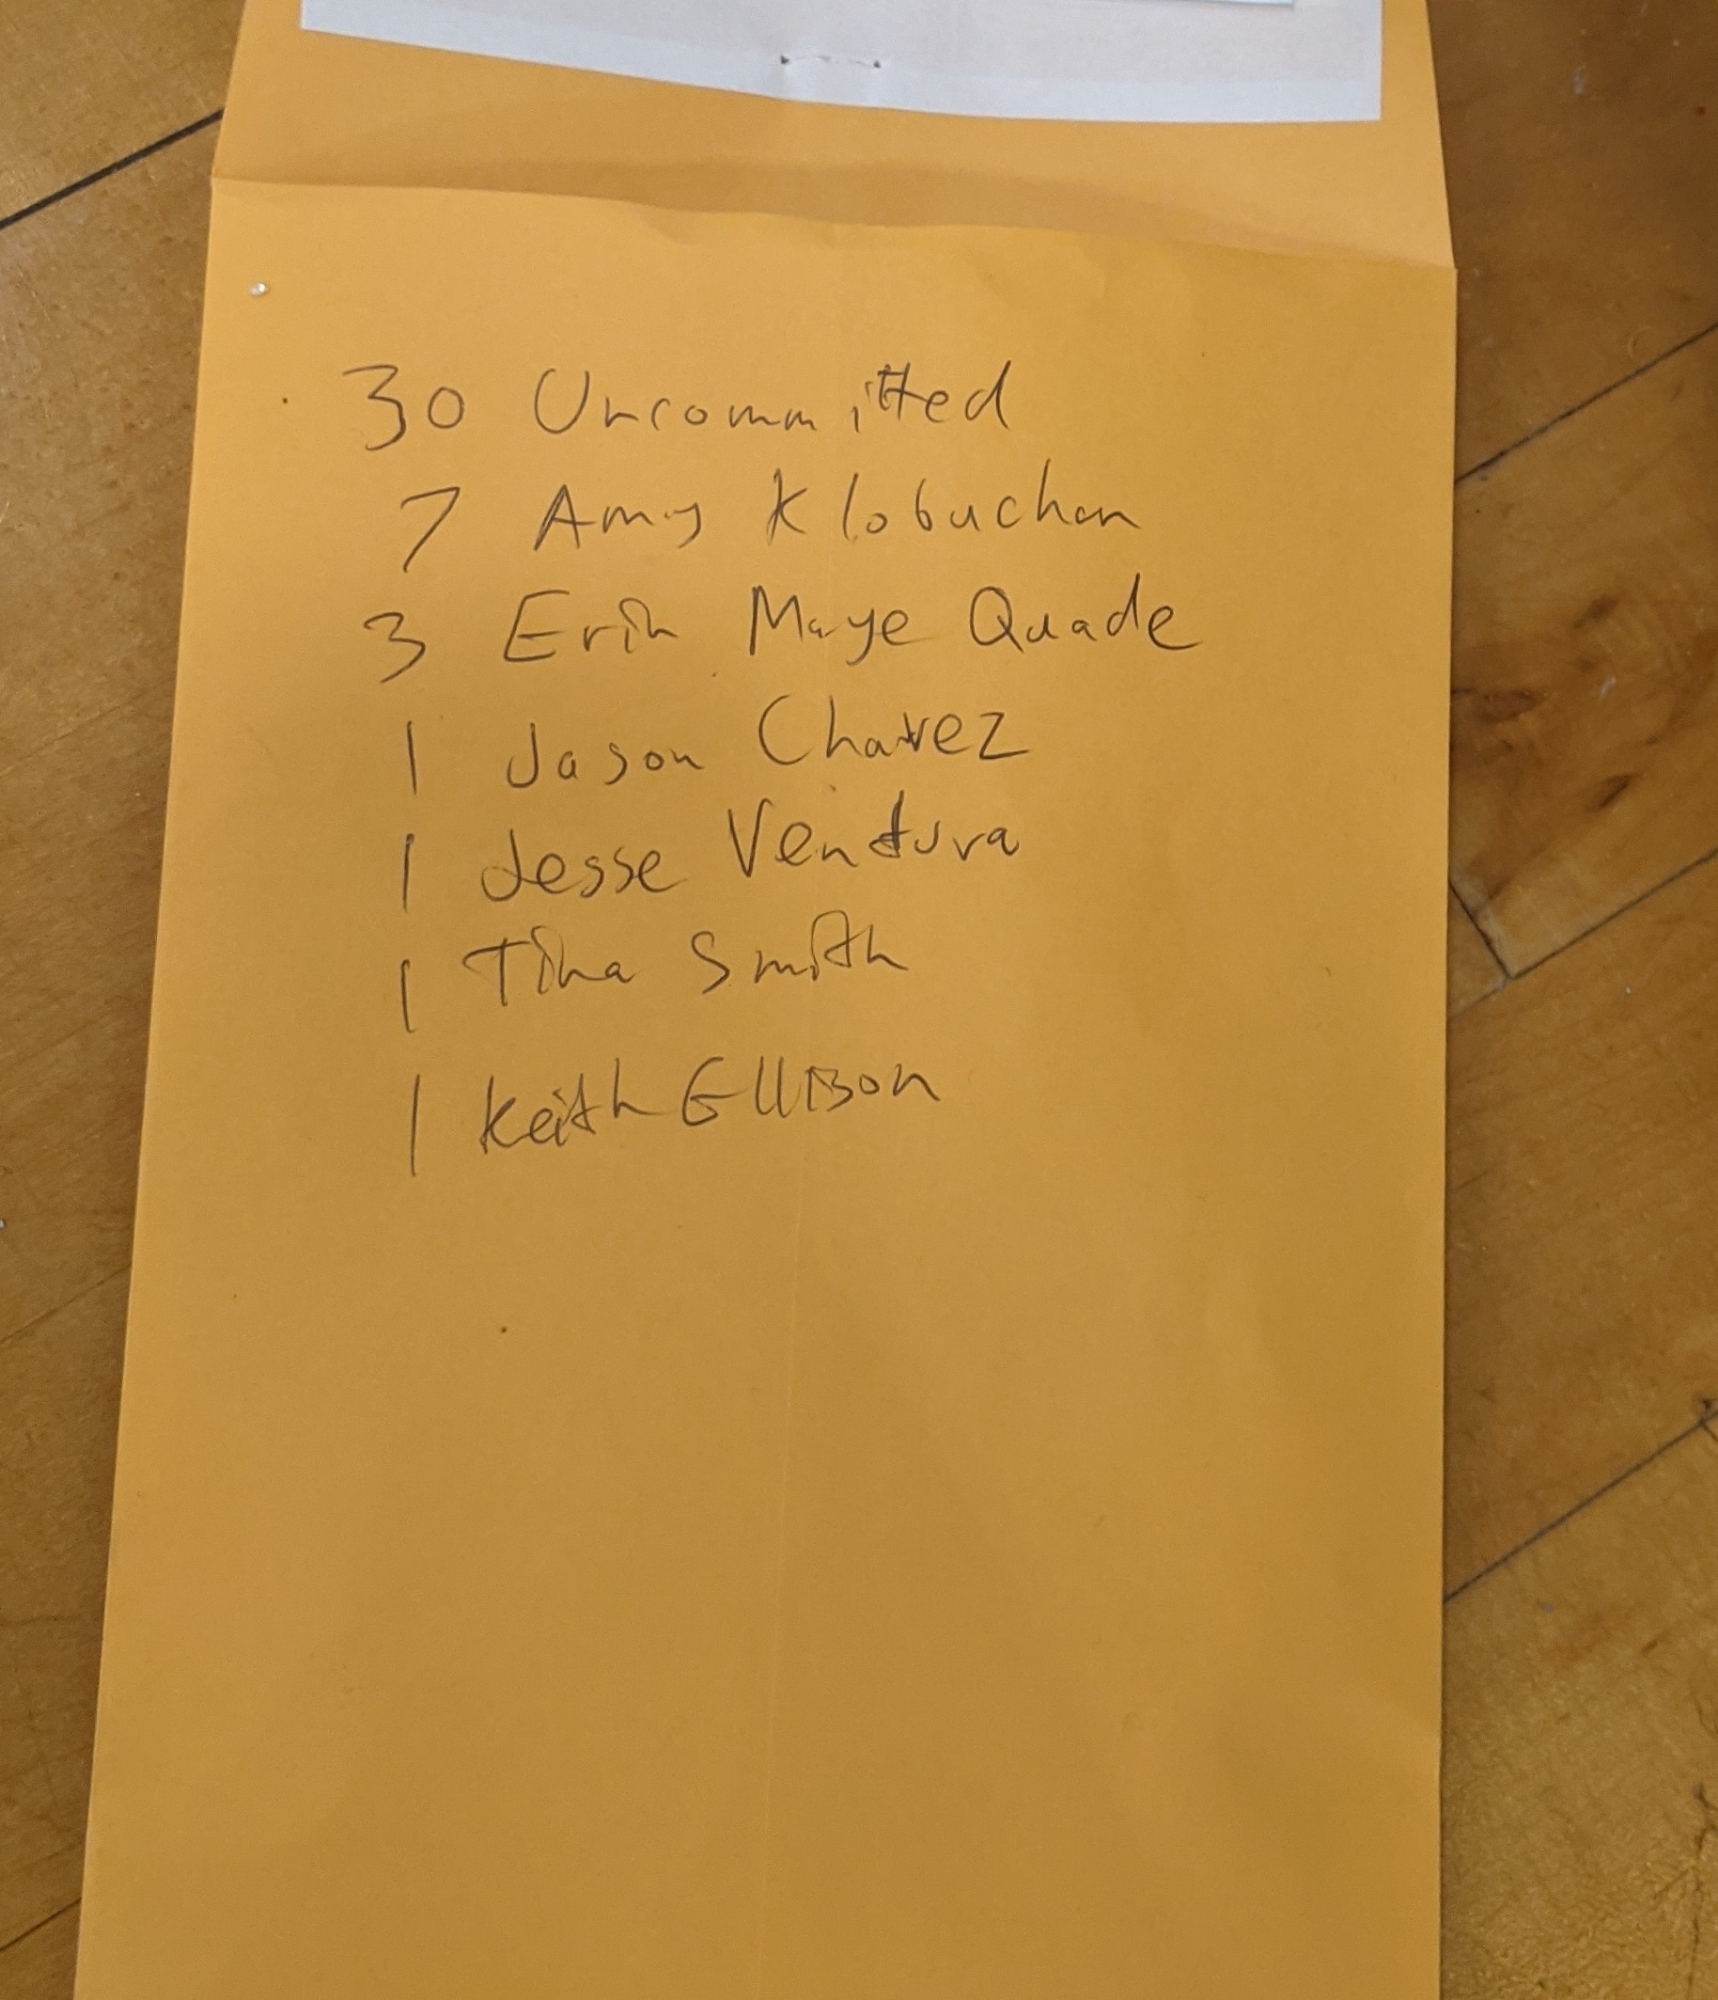 30 Uncommitted
7 Amy Klobuchar
3 Erin Maye Quade
1 Jason Chavez
1 Jesse Ventura
1 Tina Smith
1 Keith Ellison